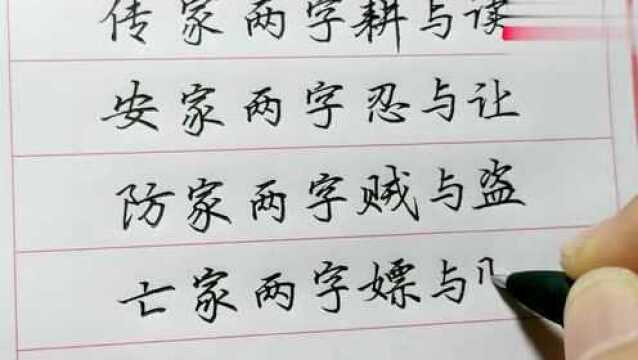 传家两字耕与读
安家两字忍与让
防家两字贼与盗
亡家两字嫖与